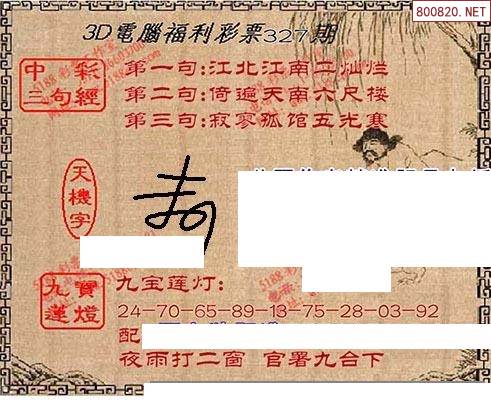 800820.NET
3D電腦福利彩票327期
中彩
三句經
第一句:江北江南二灿烂
第二句:倚遍天南六尺楼
第三句:寂寥孤馆五光寒
天機字
九寶
蓮燈
九宝莲灯:
24-70-65-89-13-75-28-03-92
配
夜雨打二窗 官署九台下